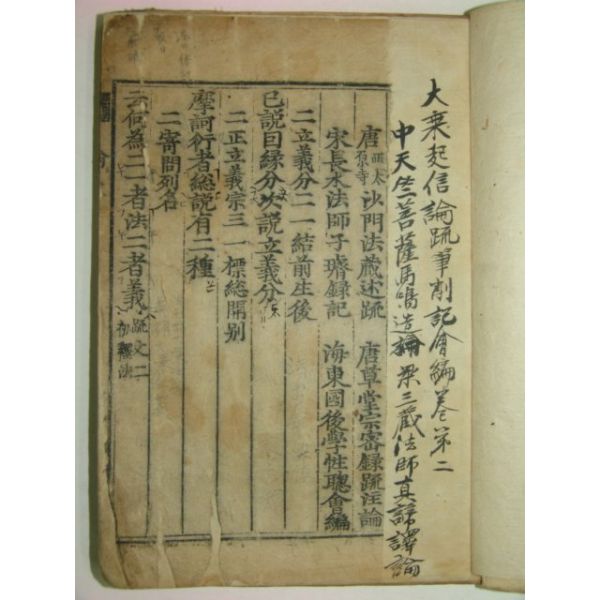 大乗起信論疏筆削記會編卷第二
中天竺菩薩馬鳴造論 梁三藏法師真諦譯論
唐西太原寺沙門法藏述疏 唐草堂宗密錄疏注論
宋長水法師子璿録記 海東國後學性聰會編
二立義分二一結前生後
已說因緣分次說立義分
二正立義宗三一標總開別
摩訶衍者總說有二種
二寄問列名
云何為二一者法二者義 疏文二初釋法